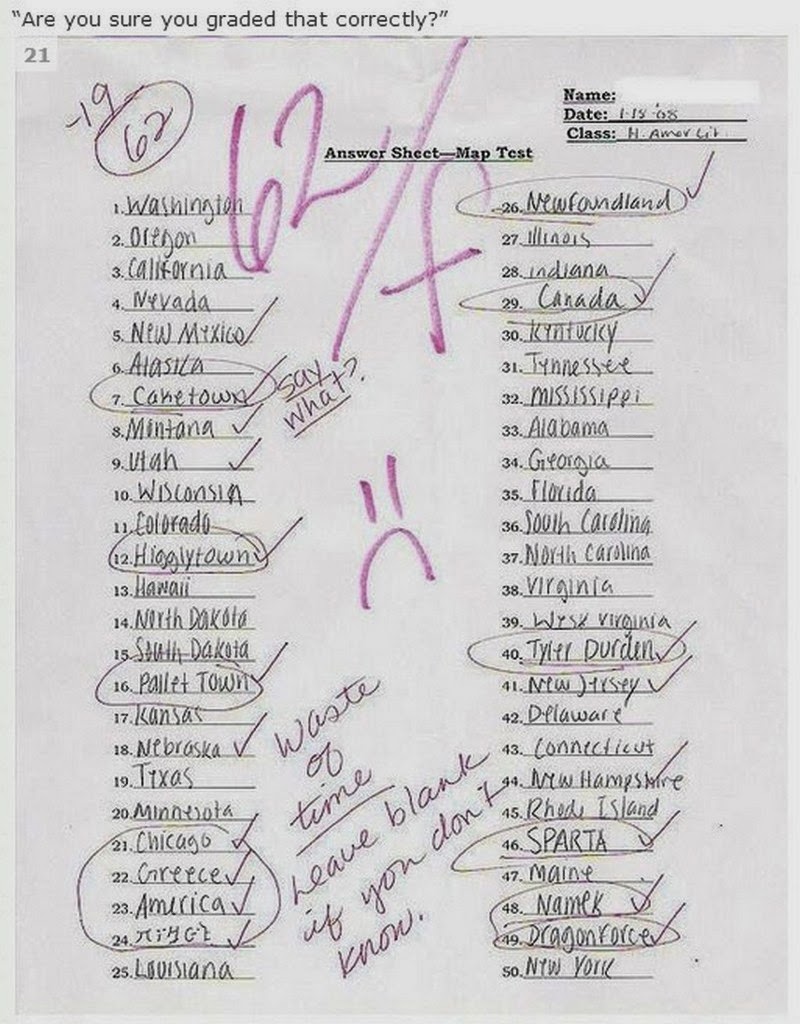 “Are you sure you graded that correctly?”
21
-19
62
62/F
Name:
Date: 1-15-08
Class: H. Amer Lit.
Answer Sheet—Map Test
1. Washington
2. Oregon
3. California
4. Nevada
5. New Mexico
6. Alaska
7. Caketown
say
what?
8. Montana
9. Utah
10. Wisconsin
11. Colorado
12. Higglytown
13. Hawaii
14. North Dakota
15. South Dakota
16. Pallet Town
17. Kansas
18. Nebraska
19. Texas
20. Minnesota
21. Chicago
22. Greece
23. America
24.
25. Louisiana
Waste
of
time
Leave blank
if you don't
know.
26. Newfoundland
27. Illinois
28. indiana
29. Canada
30. Kentucky
31. Tennessee
32. Mississippi
33. Alabama
34. Georgia
35. Florida
36. South Carolina
37. North Carolina
38. Virginia
39. West Virginia
40. Tyler Durden
41. New Jersey
42. Delaware
43. Connecticut
44. New Hampshire
45. Rhode Island
46. SPARTA
47. Maine
48. Namek
49. Dragonforce
50. New York